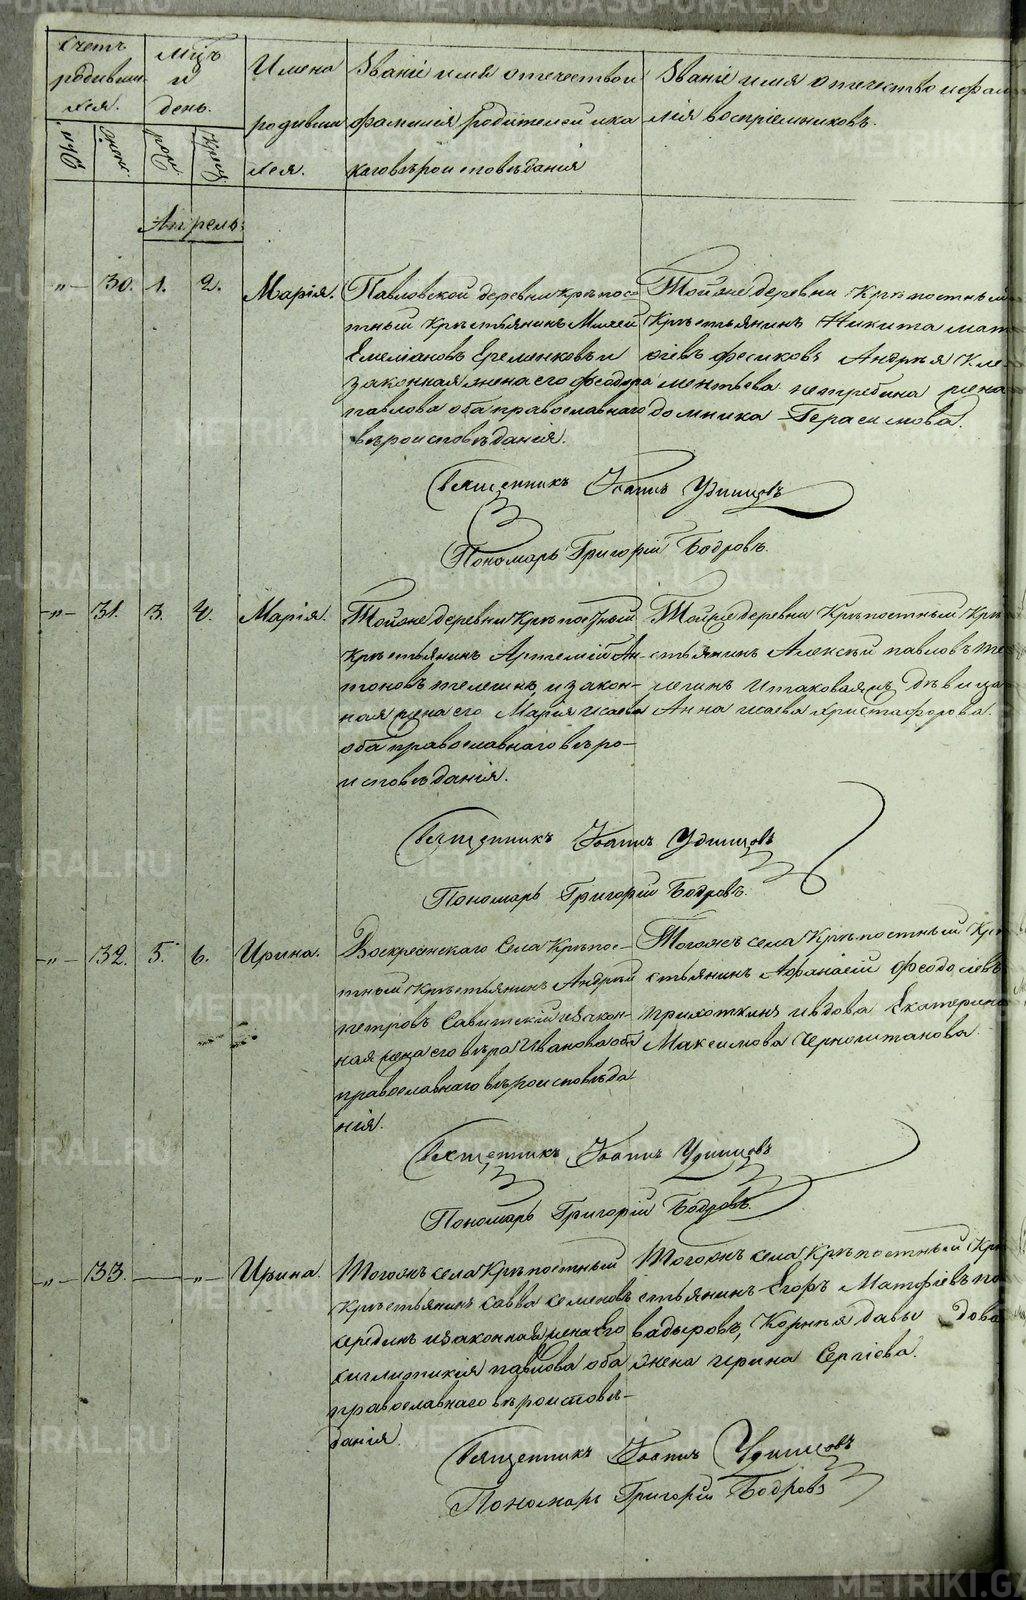 Счетъ родивши хся.
Мцъ и день.
Имена родивши хся.
Званіе имя отечество и фамилія родителей и ка каго вѣроисповѣданія
Званіе имя отечество и фами лія воспріемниковъ.
муж женс рож крещ
Апрель:
"— 30. 1. 2. Марія.
Павловской деревни крѣпос-
тный крѣстьянинъ
Емеліановъ Еременковъ и
законная жена его Феодора
павлова оба православнаго
вѣроисповѣданія.
Тойже деревни крѣпостный
крѣстьянинъ Никита мат
фіевъ фесиковъ Андрѣя Кле-
ментьева петребина жена
домника Герасимова.
Священникъ Іоаннъ Удинцовъ
Пономарь Григорій Бодровъ.
—"— 31. 3. 4. Марія.
Тойже деревни Крѣпостный
крѣстьянинъ Артемій Ан-
тоновъ телегинъ и закон-
ная жена его Марія исаева
оба православнаго вѣро-
исповѣданія.
Тойже деревни Крѣпостный Крѣ
стьянинъ Алексѣй павловъ те
легинъ и таковаяжъ дѣвица
Анна исаева Христофорова.
Священникъ Іоаннъ Удинцовъ
Пономарь Григорій Бодровъ.
—"— 32. 5. 6. Ирина.
Воскресенскаго Села Крѣпос-
тный Крѣстьянинъ Андрей
петровъ Савитскій и закон-
ная жена его вѣра Иванова оба
православнаго вѣроисповѣда
нія.
Тогожъ села Крѣпостный Крѣ
стьянинъ Афанасій Феодосіевъ
прихоткинъ и вдова Екатерина
Максимова Черноштанова
Священникъ Іоаннъ Удинцовъ
Пономарь Григорій Бодровъ.
—"— 33. — —"— Ирина.
Тогожъ села Крѣпостный
Крѣстьянинъ савва семеновъ
середкинъ и законная жена Его
сиглитикія павлова оба
православнаго вѣроисповѣ-
данія.
Тогожъ села Крѣпостный Крѣ
стьянинъ Егоръ Матфіевъ по
вадыровъ, Корнѣя давы дова
жена ирина Сергіева.
Священникъ Іоаннъ Удинцовъ
Пономарь Григорій Бодровъ
METRIKI.GASO-URAL.RU